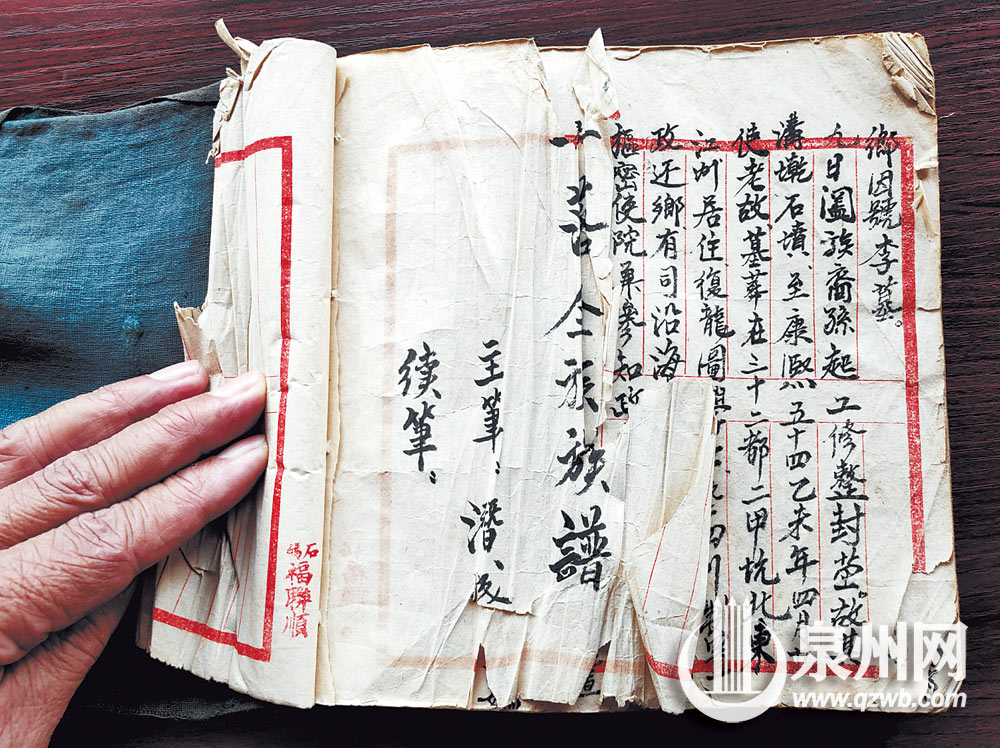 鄉因號李
日闔族裔孫起工修整封茔。故其
溝墘石墳、至康熙五十四乙未年四月
使老故墓葬在三十二都二甲坑北東
江州居住復龍圖
政还鄉有司沿海
樞密使院兼參知政
族族譜
主筆：潛、民
續筆：
石碼
福聯順
泉州网
www.qzwb.com